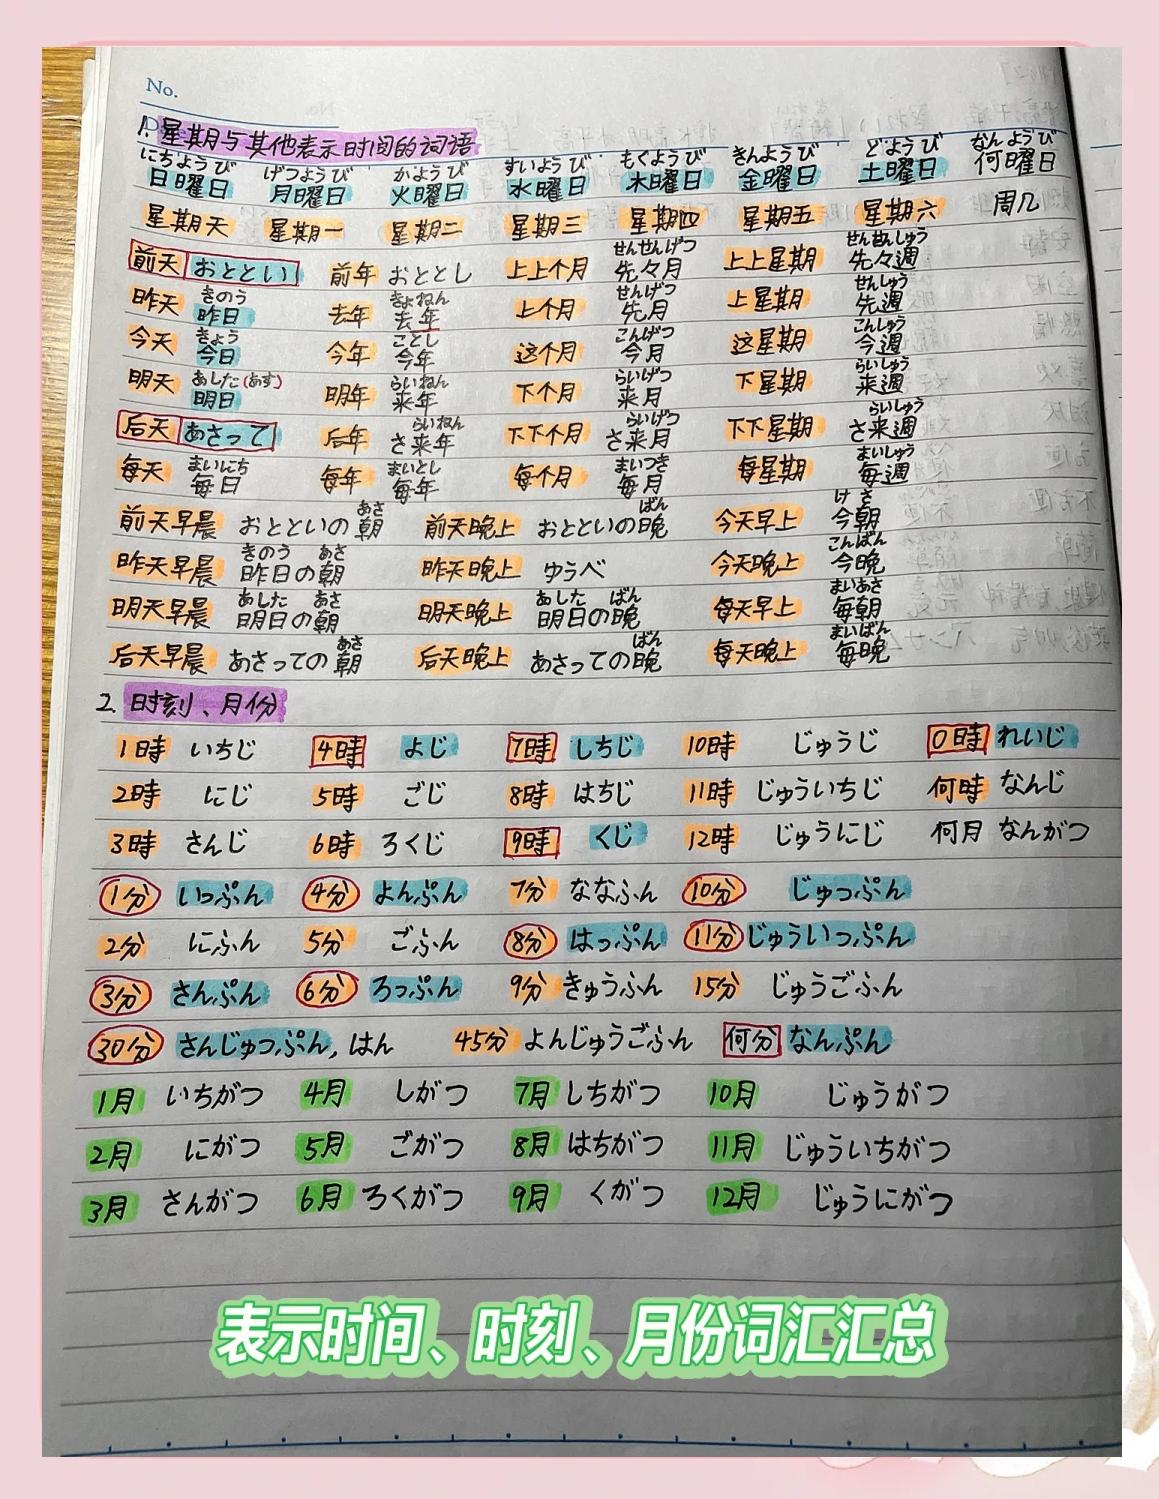 No.
1. 星期与其他表示时间的词语
にちようび げつようび かようび すいようび もくようび きんようび どようび なんようび
日曜日 月曜日 火曜日 水曜日 木曜日 金曜日 土曜日 何曜日
星期天 星期一 星期二 星期三 星期四 星期五 星期六 周几
せんせんげつ せんせんしゅう
前天 おととい 前年 おととし 上上个月 先々月 上上星期 先々週
きのう きょねん せんげつ せんしゅう
昨天 昨日 去年 去年 上个月 先月 上星期 先週
きょう ことし こんげつ こんしゅう
今天 今日 今年 今年 这个月 今月 这星期 今週
あした(あす) らいねん らいげつ らいしゅう
明天 明日 明年 来年 下个月 来月 下星期 来週
らいねん らいげつ らいしゅう
后天 あさって 后年 さ来年 下下个月 さ来月 下下星期 さ来週
まいにち まいとし まいつき まいしゅう
每天 毎日 每年 毎年 每个月 毎月 每星期 毎週
あさ ばん けさ
前天早晨 おとといの朝 前天晚上 おとといの晩 今天早上 今朝
きのう あさ こんばん
昨天早晨 昨日の朝 昨天晚上 ゆうべ 今天晚上 今晩
あした あさ あした ばん まいあさ
明天早晨 明日の朝 明天晚上 明日の晩 每天早上 毎朝
あさ ばん まいばん
后天早晨 あさっての朝 后天晚上 あさっての晩 每天晚上 毎晩
2. 时刻、月份
1時 いちじ 4時 よじ 7時 しちじ 10時 じゅうじ 0時 れいじ
2時 にじ 5時 ごじ 8時 はちじ 11時 じゅういちじ 何時 なんじ
3時 さんじ 6時 ろくじ 9時 くじ 12時 じゅうにじ 何月 なんがつ
1分 いっぷん 4分 よんぷん 7分 ななふん 10分 じゅっぷん
2分 にふん 5分 ごふん 8分 はっぷん 11分 じゅういっぷん
3分 さんぷん 6分 ろっぷん 9分 きゅうふん 15分 じゅうごふん
30分 さんじゅっぷん, はん 45分 よんじゅうごふん 何分 なんぷん
1月 いちがつ 4月 しがつ 7月 しちがつ 10月 じゅうがつ
2月 にがつ 5月 ごがつ 8月 はちがつ 11月 じゅういちがつ
3月 さんがつ 6月 ろくがつ 9月 くがつ 12月 じゅうにがつ
表示时间、时刻、月份词汇汇总